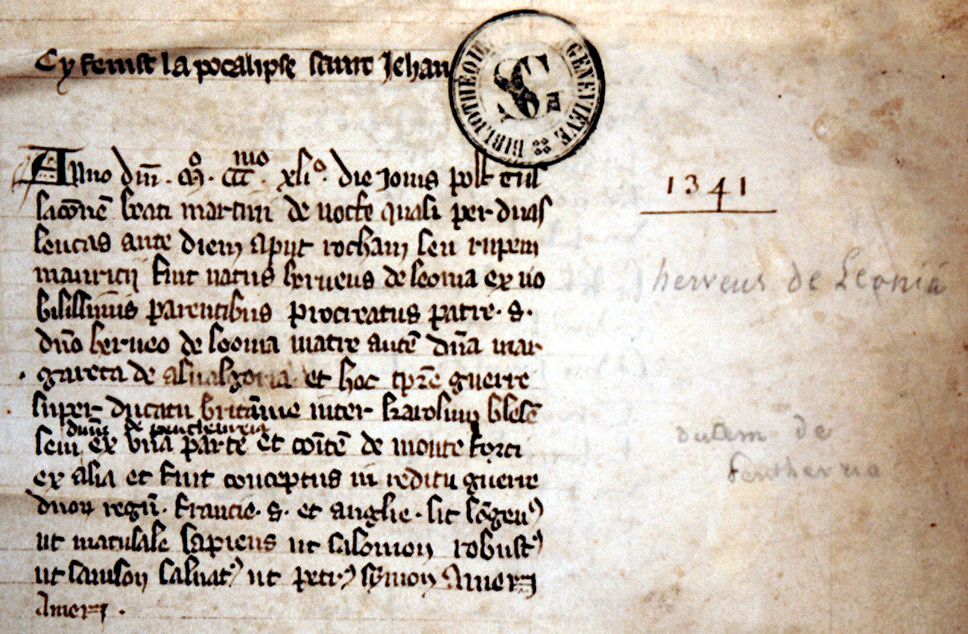 Cy fenist lapocalipse saint Jehan
BIBLIOTHEQUE GENEVIEVE
SG
Anno dnī . mº. cccmo xliº. die Jovis post
lacōnē beati martini de nocte quasi per duas
leucas ante diem aput rocham seu rupem
mauricii fuit natus herveus de leonia ex no
bilissimis parentibus procreatus patre . s.
dnō herveo de leonia matre autē dnā mar
gareta de et hoc tprē guerre
super ducatu britānie inter karolum blesē
ducē de
sem ex una parte et comitē de monte forti
ex alia et fuit conceptus in reditu guerre
duor regū . francie . s. et anglie . sit
ut matusale sapiens ut salomon robust9
ut samson salvat9 ut petr9 symon Amen
Amen .
1341
herveus de Leonia
ducem de